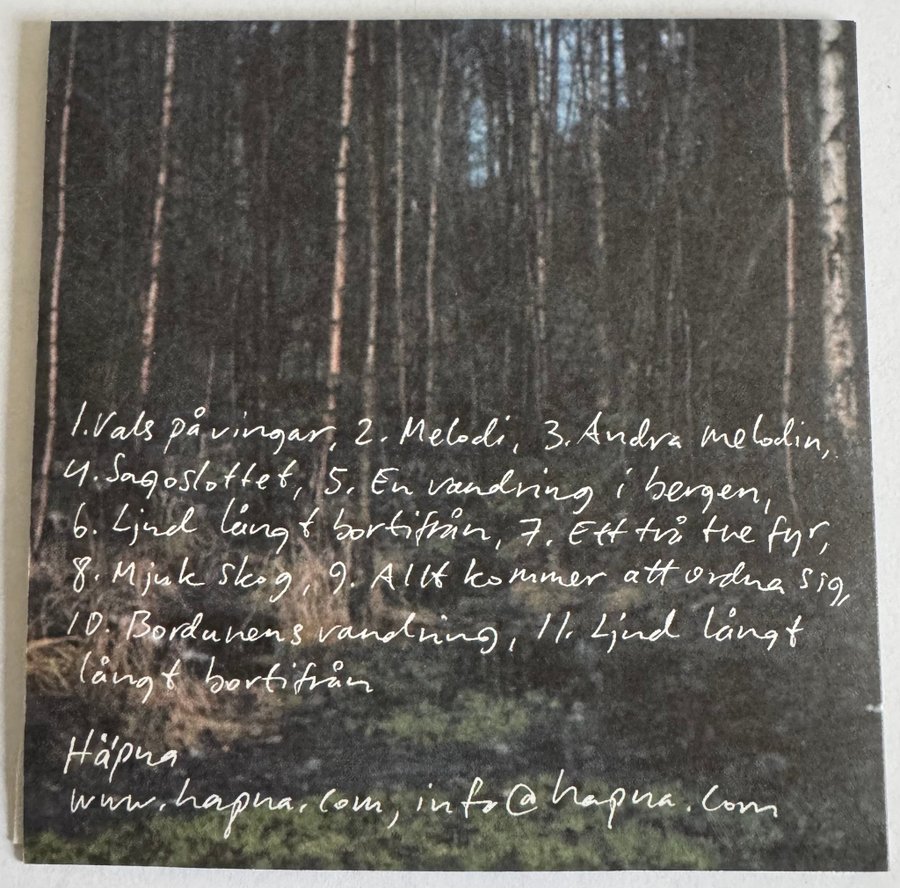 1. Vals på vingar, 2. Melodi, 3. Andra melodin,
4. Sagoslottet, 5. En vandring i bergen,
6. Ljud långt bortifrån, 7. Ett två tre fyr,
8. Mjuk skog, 9. Allt kommer att ordna sig,
10. Bordunens vandring, 11. Ljud långt
långt bortifrån
Häpna
www.hapna.com, info@hapna.com